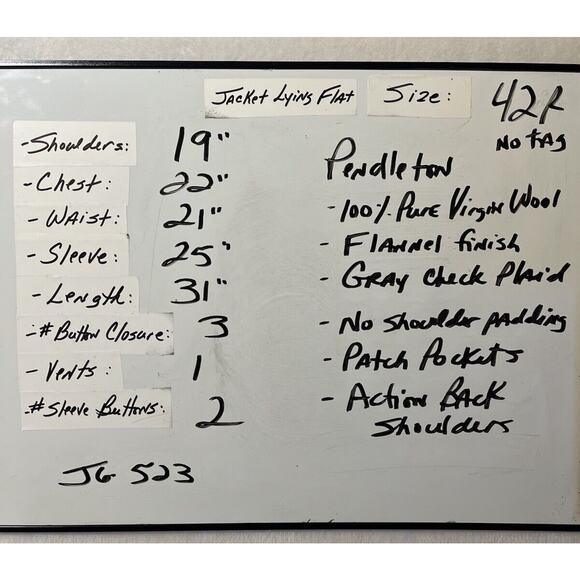 Jacket Lying Flat Size: 42R
No tag
-Shoulders: 19"
-Chest: 22"
-Waist: 21"
-Sleeve: 25"
-Length: 31"
-# Button Closure: 3
-Vents: 1
-# Sleeve Buttons: 2
JG 523
Pendleton
-100% Pure Virgin Wool
- Flannel finish
- Gray Check Plaid
- No shoulder padding
- Patch Pockets
- Action Back
Shoulders